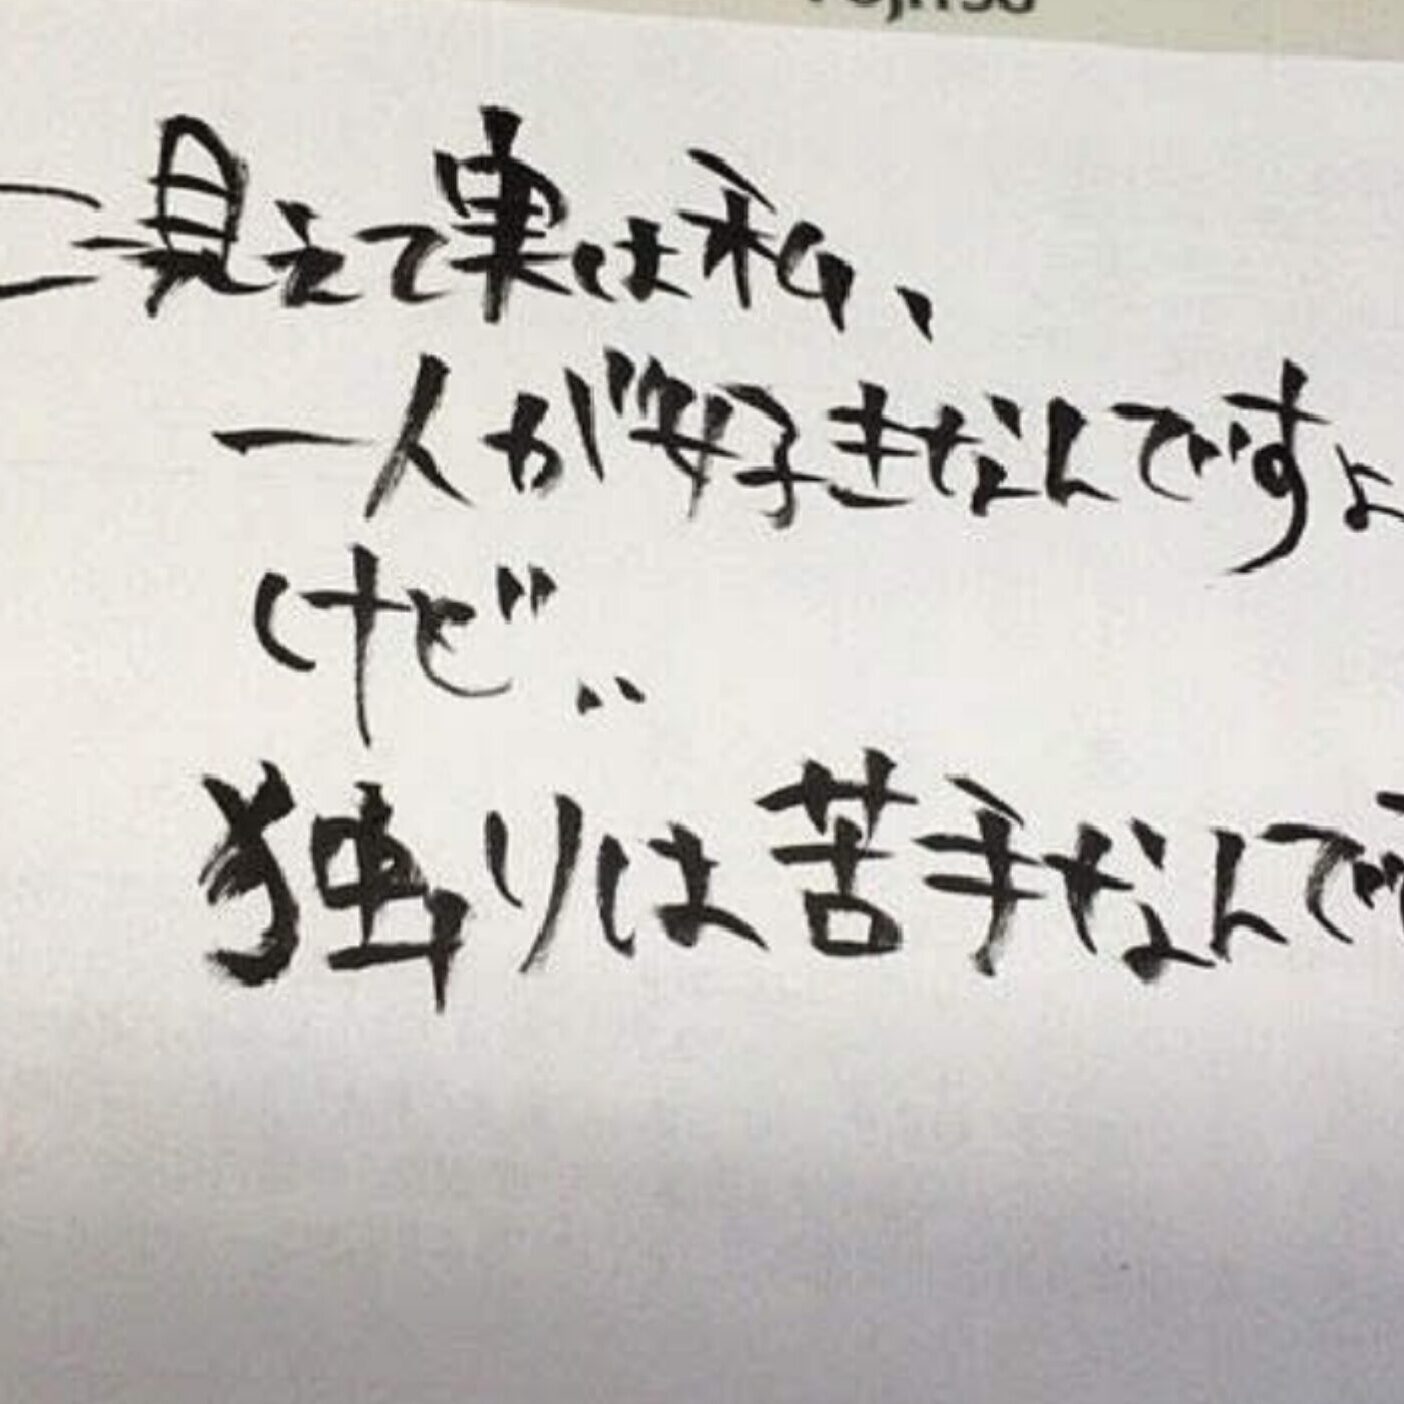 FUJITSU
こ見えて実は私、
一人が好きなんですよ
けど‥
独りは苦手なんで